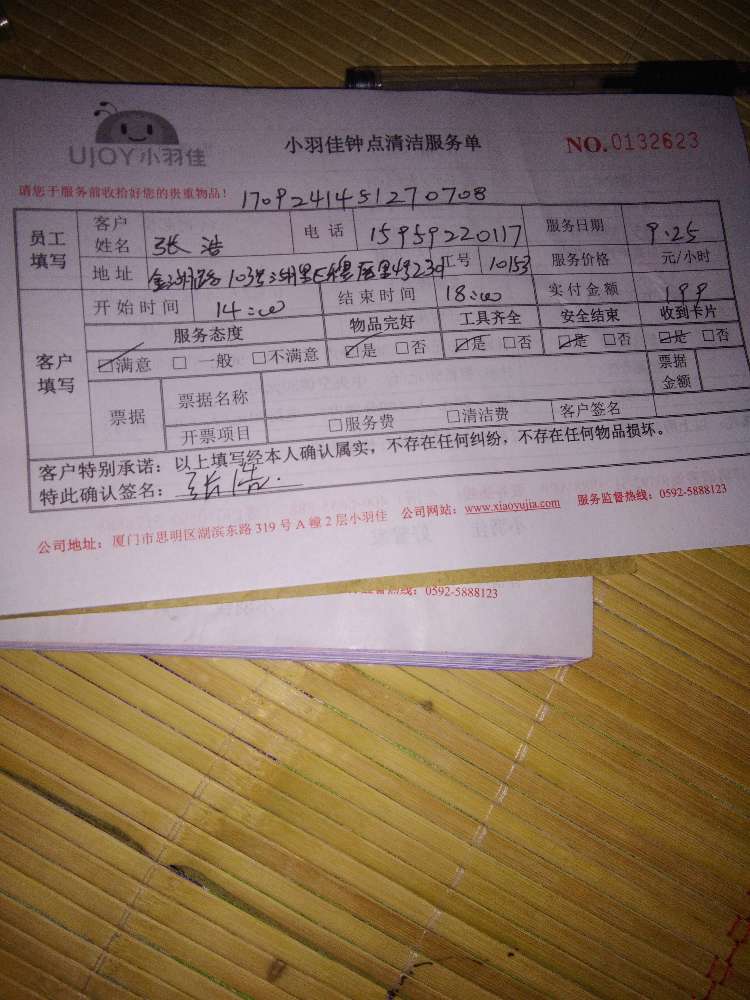 UJOY小羽佳
小羽佳钟点清洁服务单
NO.0132623
请您于服务前收拾好您的贵重物品！
1709241451270708
员工填写 客户姓名 张浩 电话 15959220117 服务日期 9.25
地址 103 工号 10153 服务价格 元/小时
客户填写 开始时间 14:00 结束时间 18:00 实付金额 198
服务态度 物品完好 工具齐全 安全结束 收到卡片
☑满意 □一般 □不满意 ☑是 □否 ☑是 □否 ☑是 □否 ☑是 □否
票据 票据名称 票据金额
开票项目 □服务费 □清洁费 客户签名
客户特别承诺：以上填写经本人确认属实，不存在任何纠纷，不存在任何物品损坏。
特此确认签名：张浩.
公司地址：厦门市思明区湖滨东路319号A幢2层小羽佳 公司网站：www.xiaoyujia.com 服务监督热线：0592-5888123
热线：0592-5888123